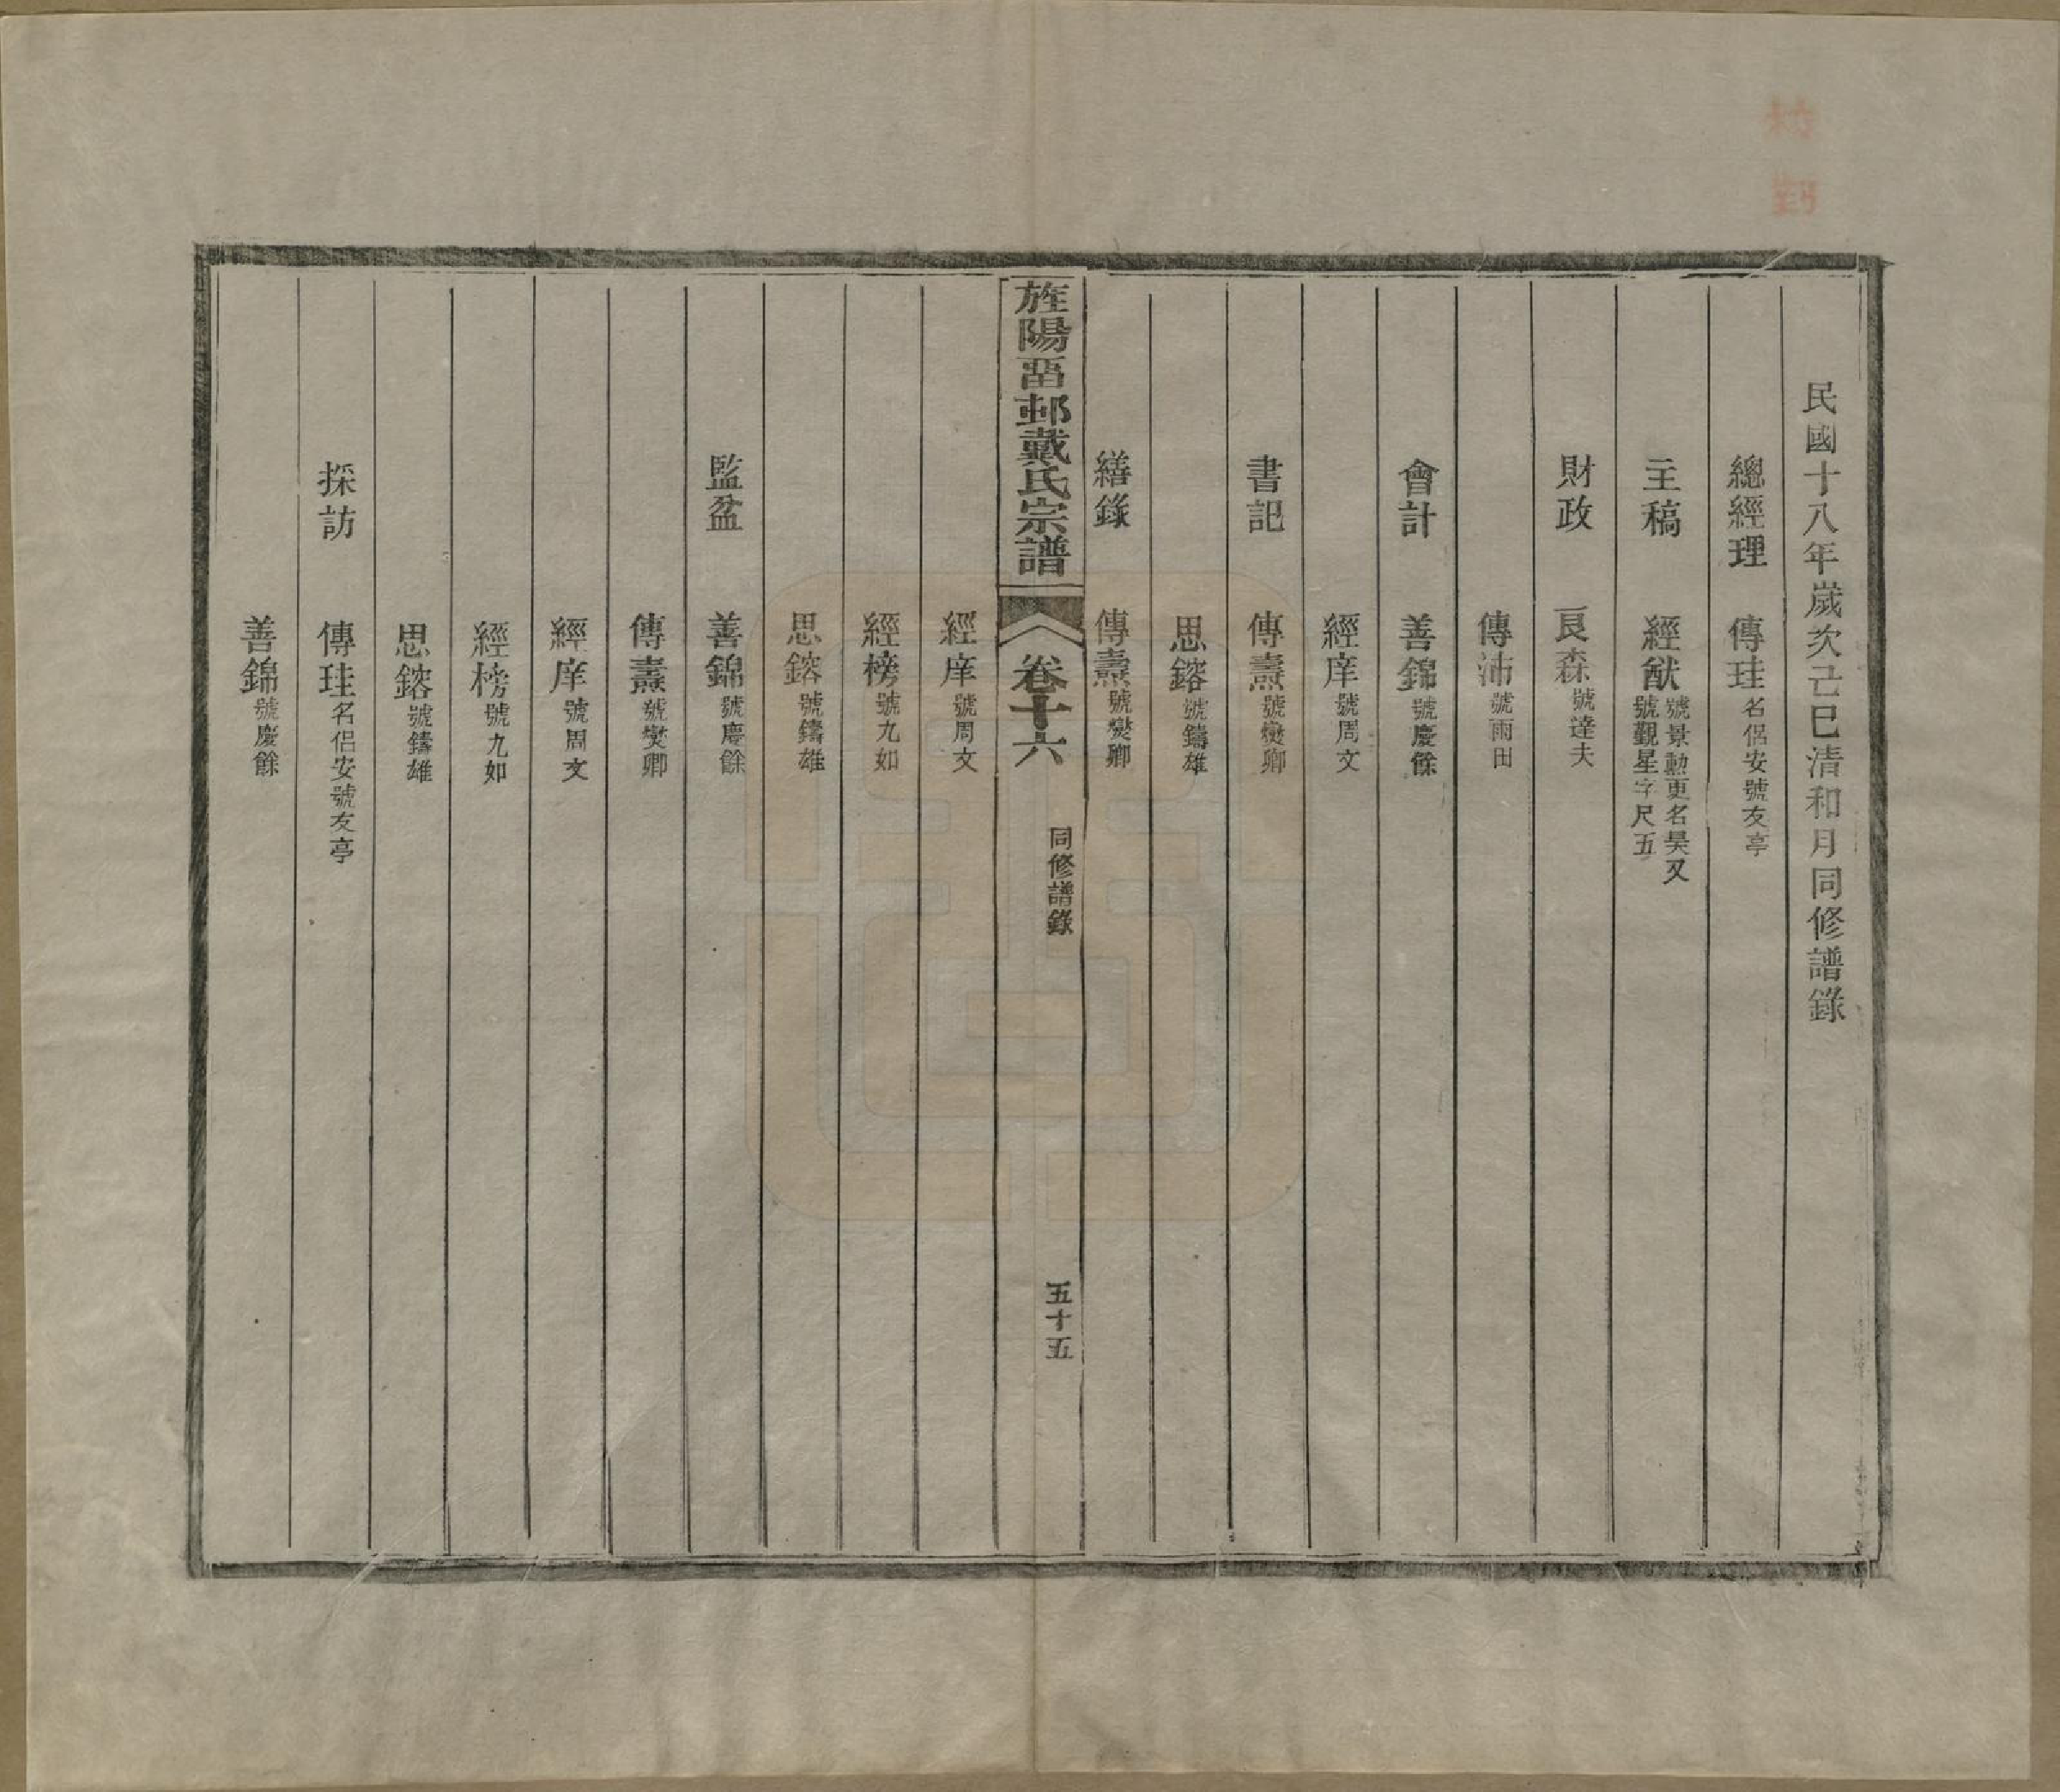 校對
民國十八年歲次己巳清和月同修譜錄
總經理 傳珪名侶安號友亭
主稿 經猷號景勳更名昊又號觀星字尺五
財政 良森號達夫
傳沛號雨田
會計 善錦號慶餘
經庠號周文
書記 傳燾號爕卿
思鎔號鑄雄
繕錄 傳燾號爕卿
旌陽西邨戴氏宗譜 卷十六 同修譜錄 五十五
經庠號周文
經榜號九如
思鎔號鑄雄
監盆 善錦號慶餘
傳燾號爕卿
經庠號周文
經榜號九如
思鎔號鑄雄
採訪 傳珪名侶安號友亭
善錦號慶餘